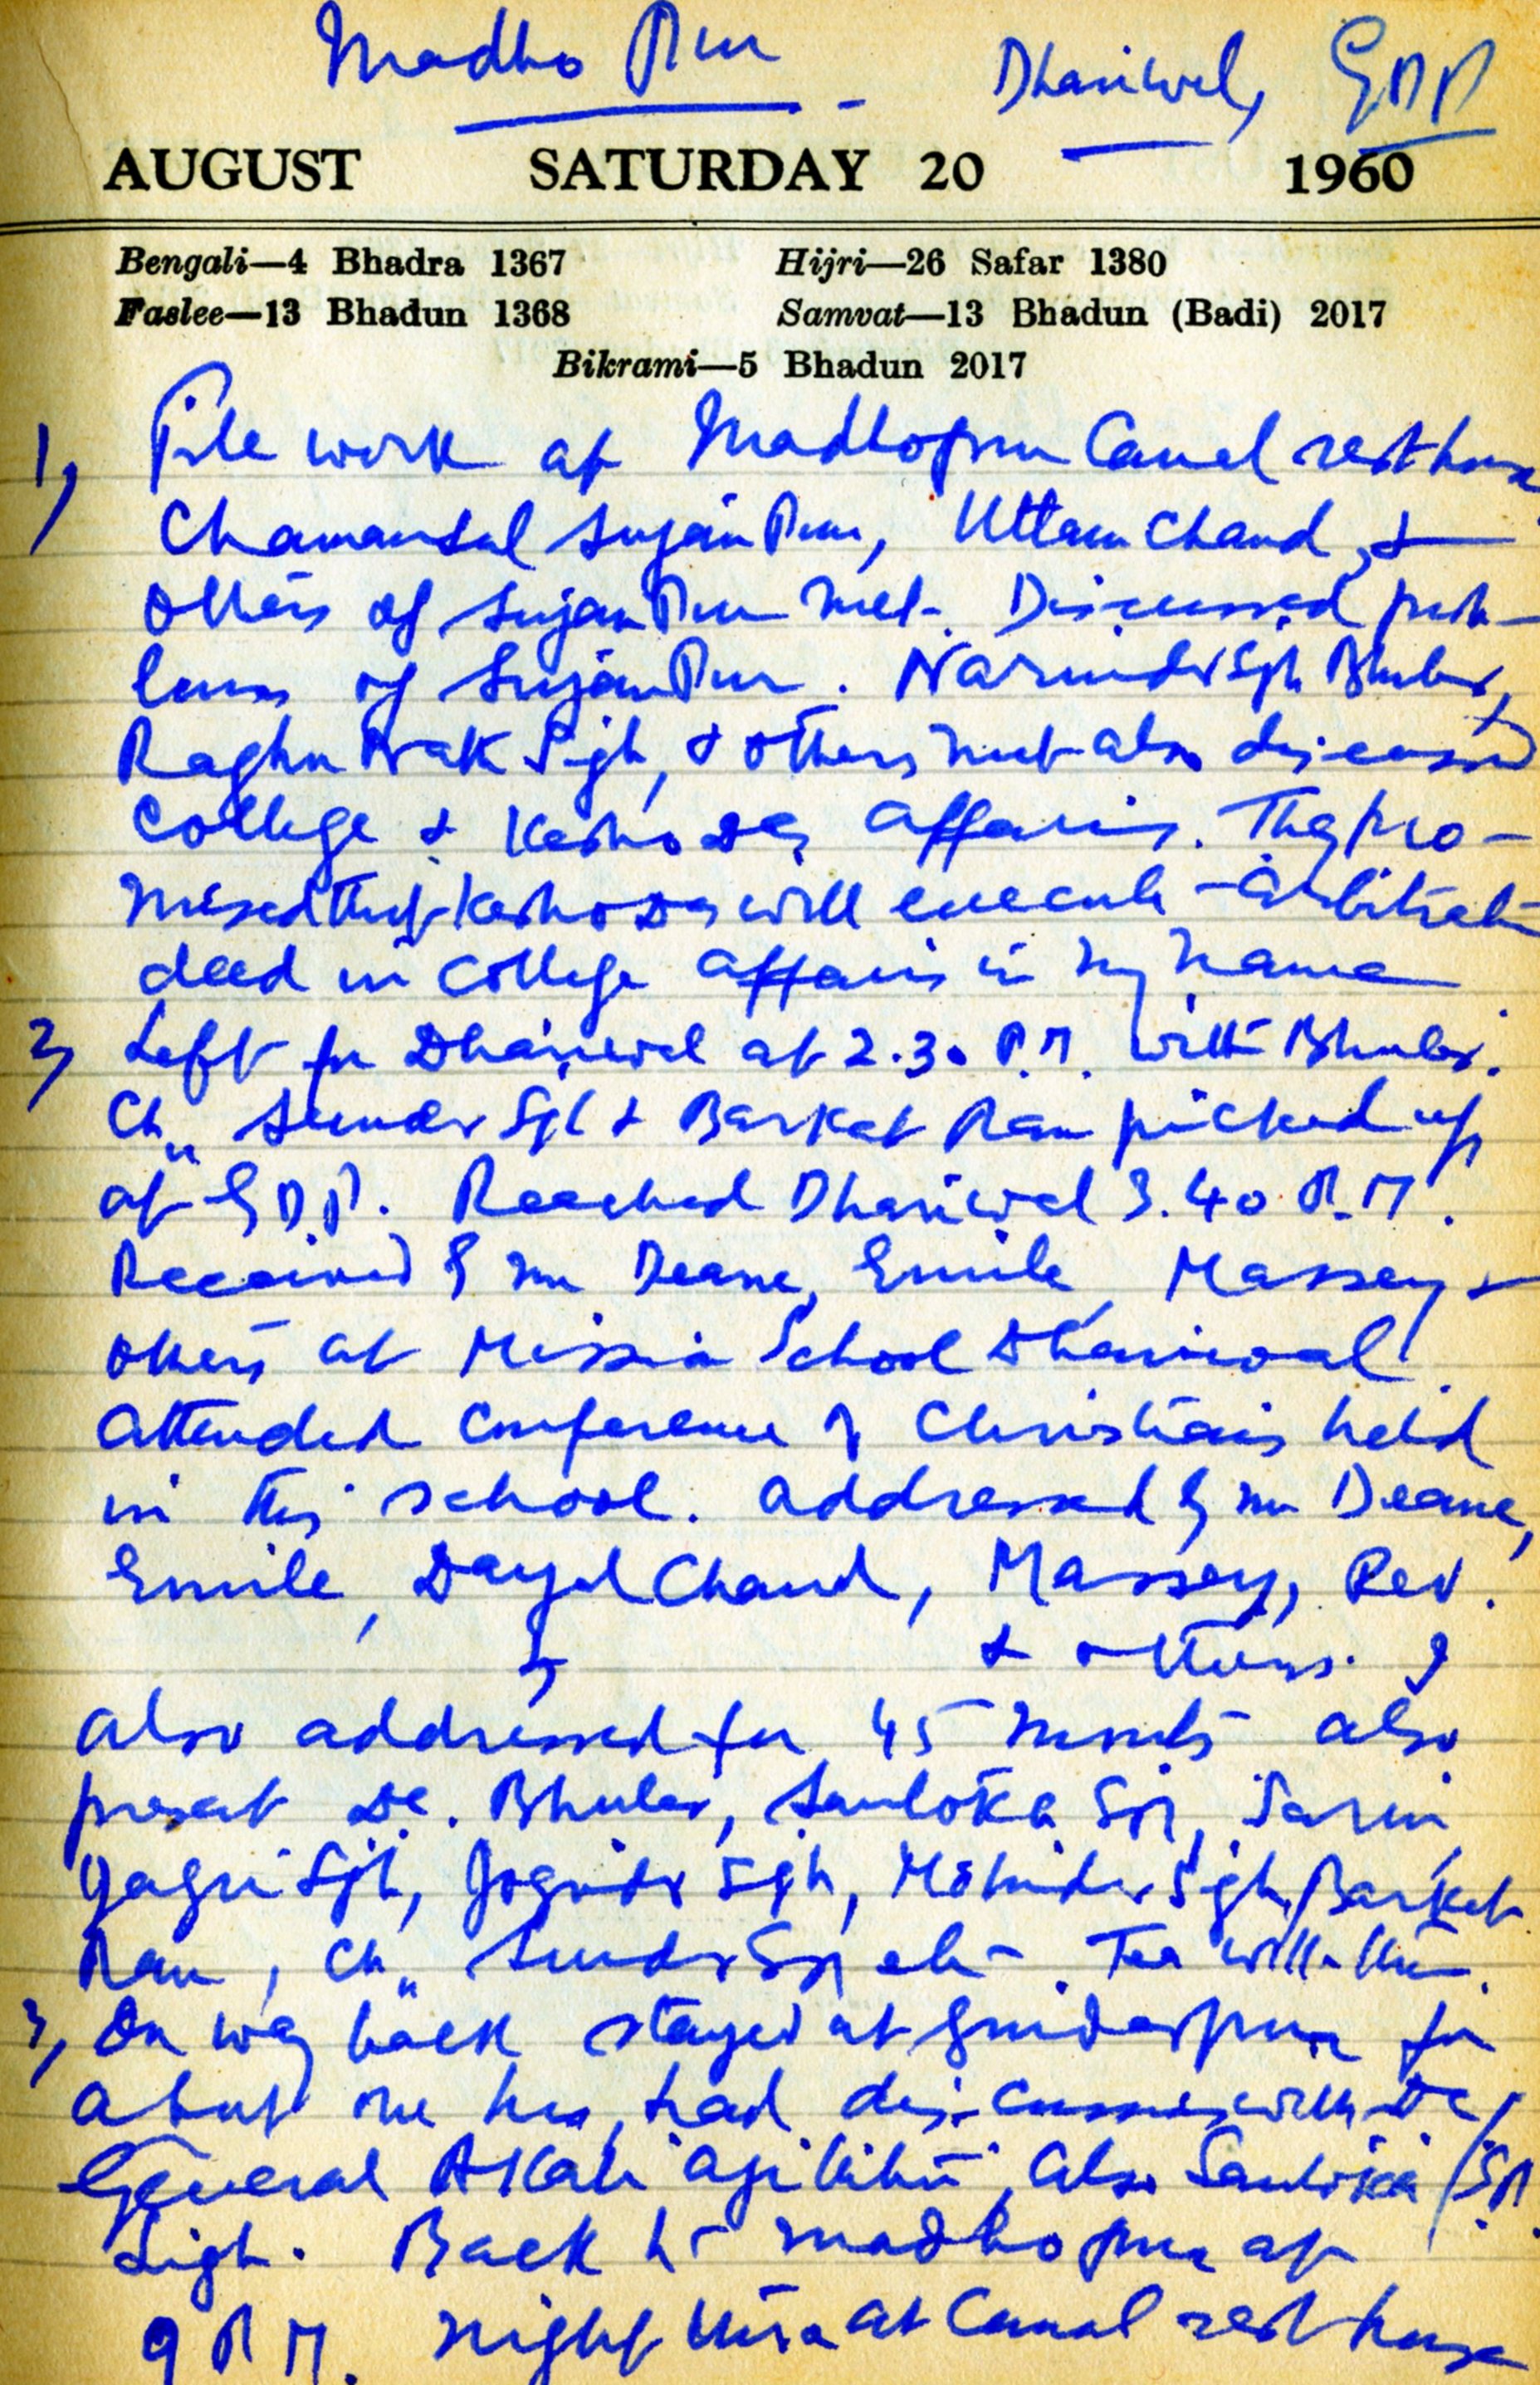 Madho Pur - Dhariwal, GDP
AUGUST SATURDAY 20 1960
Bengali—4 Bhadra 1367 Hijri—26 Safar 1380
Faslee—13 Bhadun 1368 Samvat—13 Bhadun (Badi) 2017
Bikrami—5 Bhadun 2017
1, File work at Madhopur Canal rest house
Chamanlal Sujan Pur, Uttam Chand, &
others of Sujan Pur met. Discussed prob-
lems of Sujan Pur. Narinder Sgh Bhuler,
Raghu Sigh, & others met also discussed
College & Kesho Das affairs. They pro-
mised that Kesho Das will execute - arbitrat
deed in College affairs in my name
2, Left for Dhariwal at 2.30 P.M. with Bhuler.
Ch" Sunder Sgh & Barkat Ram picked up
at GDP. Reached Dhariwal 3.40 P.M.
Received by Mr Deane, Emile, Massey &
others at Mission School Dhariwal.
Attended Conference of Christians held
in this school. Addressed by Mr Deane,
Emile, Dayal Chand, Massey, Rev.
& others. I
also addressed for 45 minutes also
present DC. Bhuler, SP, Sarin
Jagir Sgh, Joginder Sgh, Mohinder Sigh, Barket
Ram, Ch" Sunder Sgh etc. Tea with
3, On way back stayed at Gurdaspur for
about one hr, had discussions with DC
General Akali agitation, also /SP.
Sigh. Back to Madhopur at
9 P.M. Night at Canal rest house